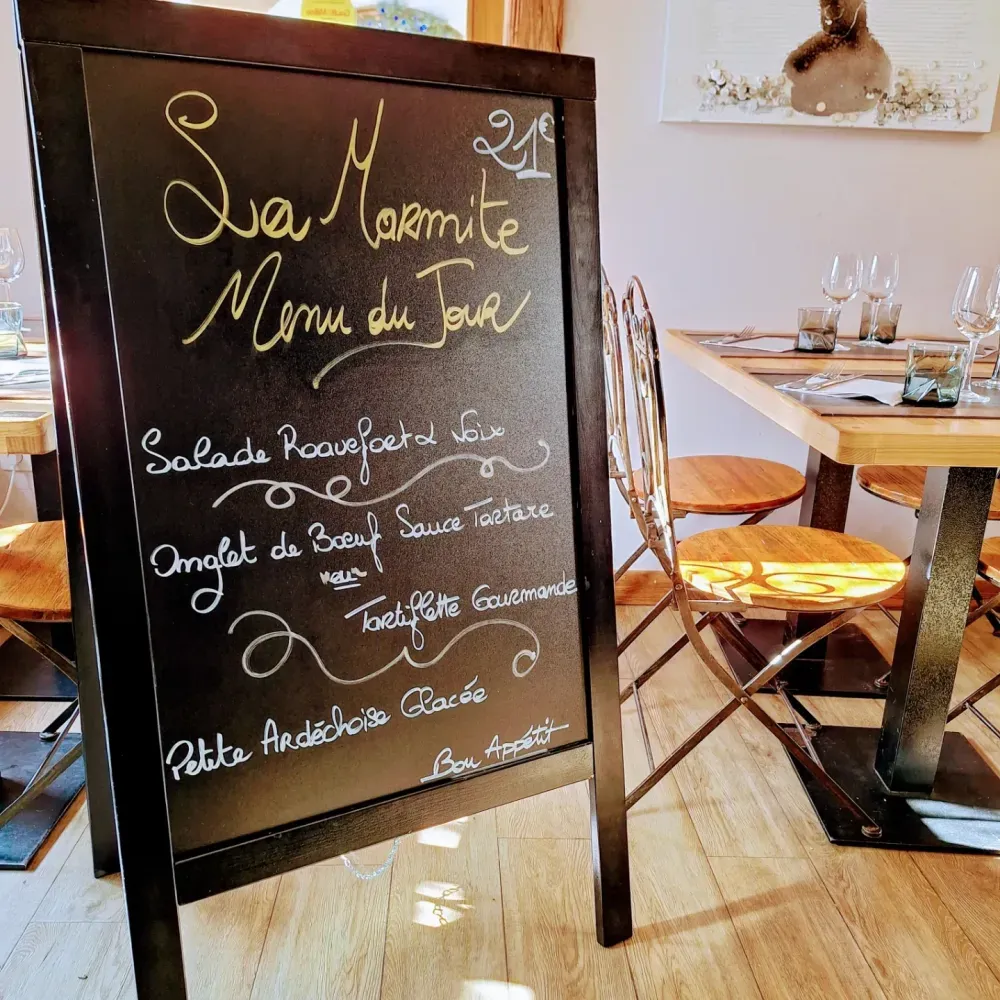 21€
La Marmite
Menu du Jour
Salade Roquefort & Noix
Onglet de Bœuf Sauce Tartare
ou
Tartiflette Gourmande
Petite Ardéchoise Glacée
Bon Appétit